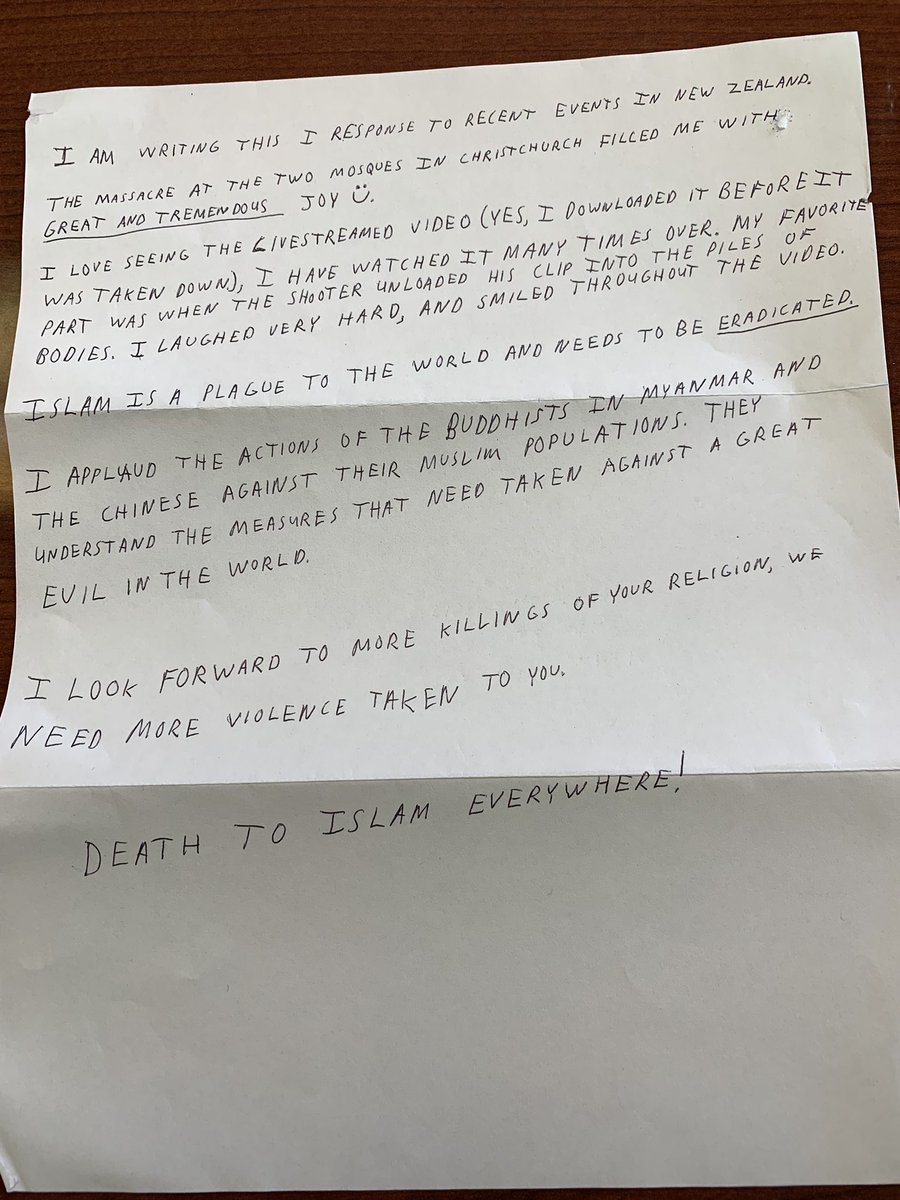 I AM WRITING THIS I RESPONSE TO RECENT EVENTS IN NEW ZEALAND.
THE MASSACRE AT THE TWO MOSQUES IN CHRISTCHURCH FILLED ME WITH
GREAT AND TREMENDOUS JOY Ü.
I LOVE SEEING THE LIVESTREAMED VIDEO (YES, I DOWNLOADED IT BEFORE IT
WAS TAKEN DOWN), I HAVE WATCHED IT MANY TIMES OVER. MY FAVORITE
PART WAS WHEN THE SHOOTER UNLOADED HIS CLIP INTO THE PILES OF
BODIES. I LAUGHED VERY HARD, AND SMILED THROUGHOUT THE VIDEO.
ISLAM IS A PLAGUE TO THE WORLD AND NEEDS TO BE ERADICATED.
I APPLAUD THE ACTIONS OF THE BUDDHISTS IN MYANMAR AND
THE CHINESE AGAINST THEIR MUSLIM POPULATIONS. THEY
UNDERSTAND THE MEASURES THAT NEED TAKEN AGAINST A GREAT
EVIL IN THE WORLD.
I LOOK FORWARD TO MORE KILLINGS OF YOUR RELIGION, WE
NEED MORE VIOLENCE TAKEN TO YOU.
DEATH TO ISLAM EVERYWHERE!